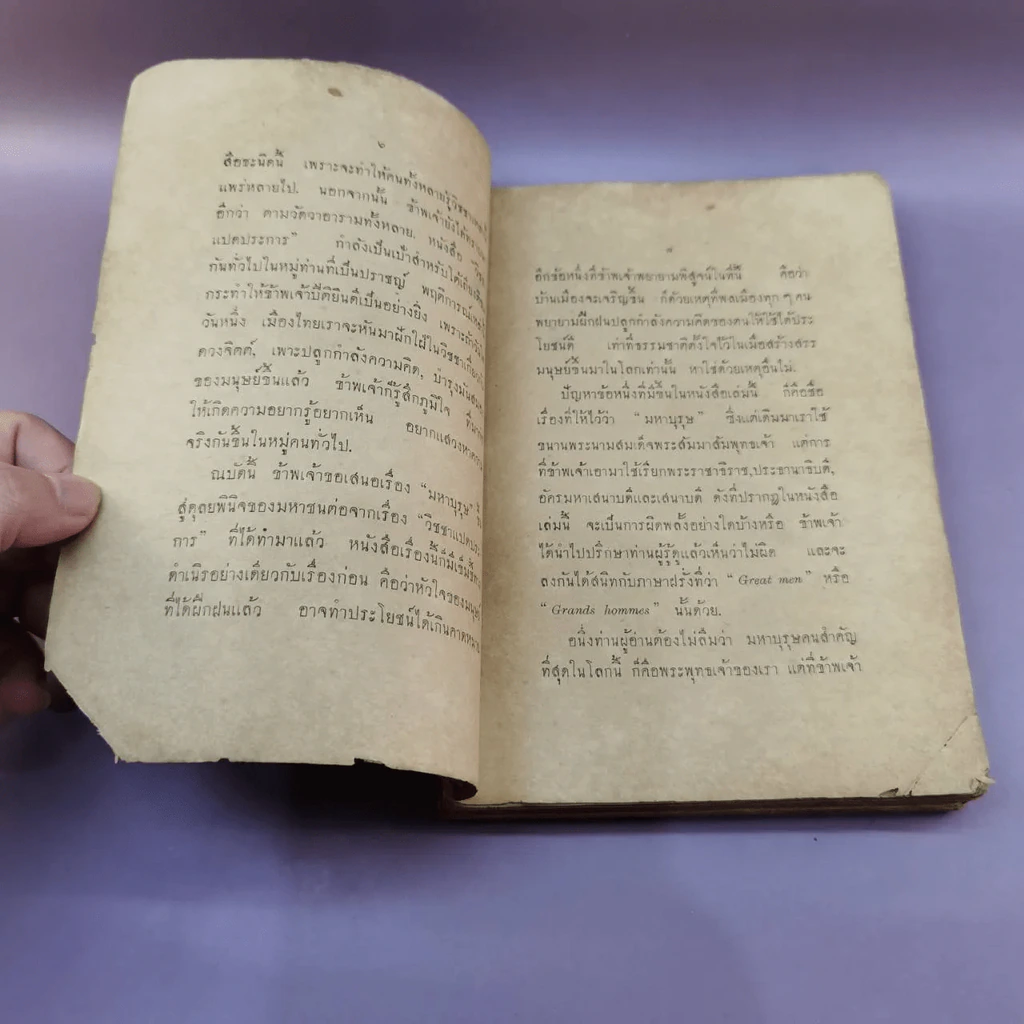 ๖
สือชะนิดนี้ เพราะจะทำให้คนทั้งหลายรู้วิชชา
แพร่หลายไป. นอกจากนั้น ข้าพเจ้ายังได้ทราบ
อีกว่า ตามวัดวาอารามทั้งหลาย. หนังสือ
แปดประการ" กำลังเป็นเป้าสำหรับโต้เถียง
กันทั่วไปในหมู่ท่านที่เป็นปราชญ์ พฤติการณ์
กระทำให้ข้าพเจ้าปีติยินดีเป็นอย่างยิ่ง เพราะถ้า
วันหนึ่ง เมืองไทยเราจะหันมาฝักใฝ่ในวิชชา
ดวงจิตต์, เพาะปลูกกำลังความคิด, บำรุงมันสมอง
ของมนุษย์ขึ้นแล้ว ข้าพเจ้าก็รู้สึกภูมิใจ
ให้เกิดความอยากรู้อยากเห็น อยากแสวงหา
จริงกันขึ้นในหมู่คนทั่วไป.
ณบัดนี้ ข้าพเจ้าขอเสนอเรื่อง "มหาบุรุษ"
สู่ดุลยพินิจของมหาชนต่อจากเรื่อง "วิชชาแปดประ
การ" ที่ได้ทำมาแล้ว หนังสือเรื่องนี้ก็มีเข็ม
ดำเนิรอย่างเดียวกับเรื่องก่อน คือว่าหัวใจของมนุษย์
ที่ได้ฝึกฝนแล้ว อาจทำประโยชน์ได้เกินคาดหมาย
อีกข้อหนึ่งที่ข้าพเจ้าพยายามพิสูจน์ในที่นี้ คือว่า
บ้านเมืองจะเจริญขึ้น ก็ด้วยเหตุที่พลเมืองทุก ๆ คน
พยายามฝึกฝนปลูกกำลังความคิดของตนให้ใช้ได้ประ
โยชน์ดี เท่าที่ธรรมชาติตั้งใจไว้ในเมื่อสร้างสรร
มนุษย์ขึ้นมาในโลกเท่านั้น หาใช่ด้วยเหตุอื่นไม่.
ปัญหาข้อหนึ่งที่มีขึ้นในหนังสือเล่มนี้ ก็คือชื่อ
เรื่องที่ให้ไว้ว่า "มหาบุรุษ" ซึ่งแต่เดิมมาเราใช้
ขนานพระนามสมเด็จพระสัมมาสัมพุทธเจ้า แต่การ
ที่ข้าพเจ้าเอามาใช้เรียกพระราชาธิราช,ประธานาธิบดี,
อัครมหาเสนาบดีและเสนาบดี ดังที่ปรากฏในหนังสือ
เล่มนี้ จะเป็นการผิดพลั้งอย่างใดบ้างหรือ ข้าพเจ้า
ได้นำไปปรึกษาท่านผู้รู้ดูแล้วเห็นว่าไม่ผิด และจะ
ลงกันได้สนิทกับภาษาฝรั่งที่ว่า "Great men" หรือ
"Grands hommes" นั้นด้วย.
อนึ่งท่านผู้อ่านต้องไม่ลืมว่า มหาบุรุษคนสำคัญ
ที่สุดในโลกนี้ ก็คือพระพุทธเจ้าของเรา แต่ที่ข้าพเจ้า